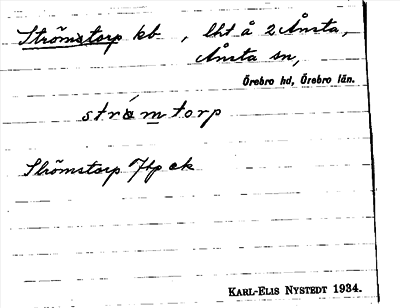 Strömstorp kb , lht å 2 Ånsta,
Ånsta sn,
Örebro hd, Örebro län.
strömtorp
Strömstorp Jtp ek
KARL-ELIS NYSTEDT 1934.